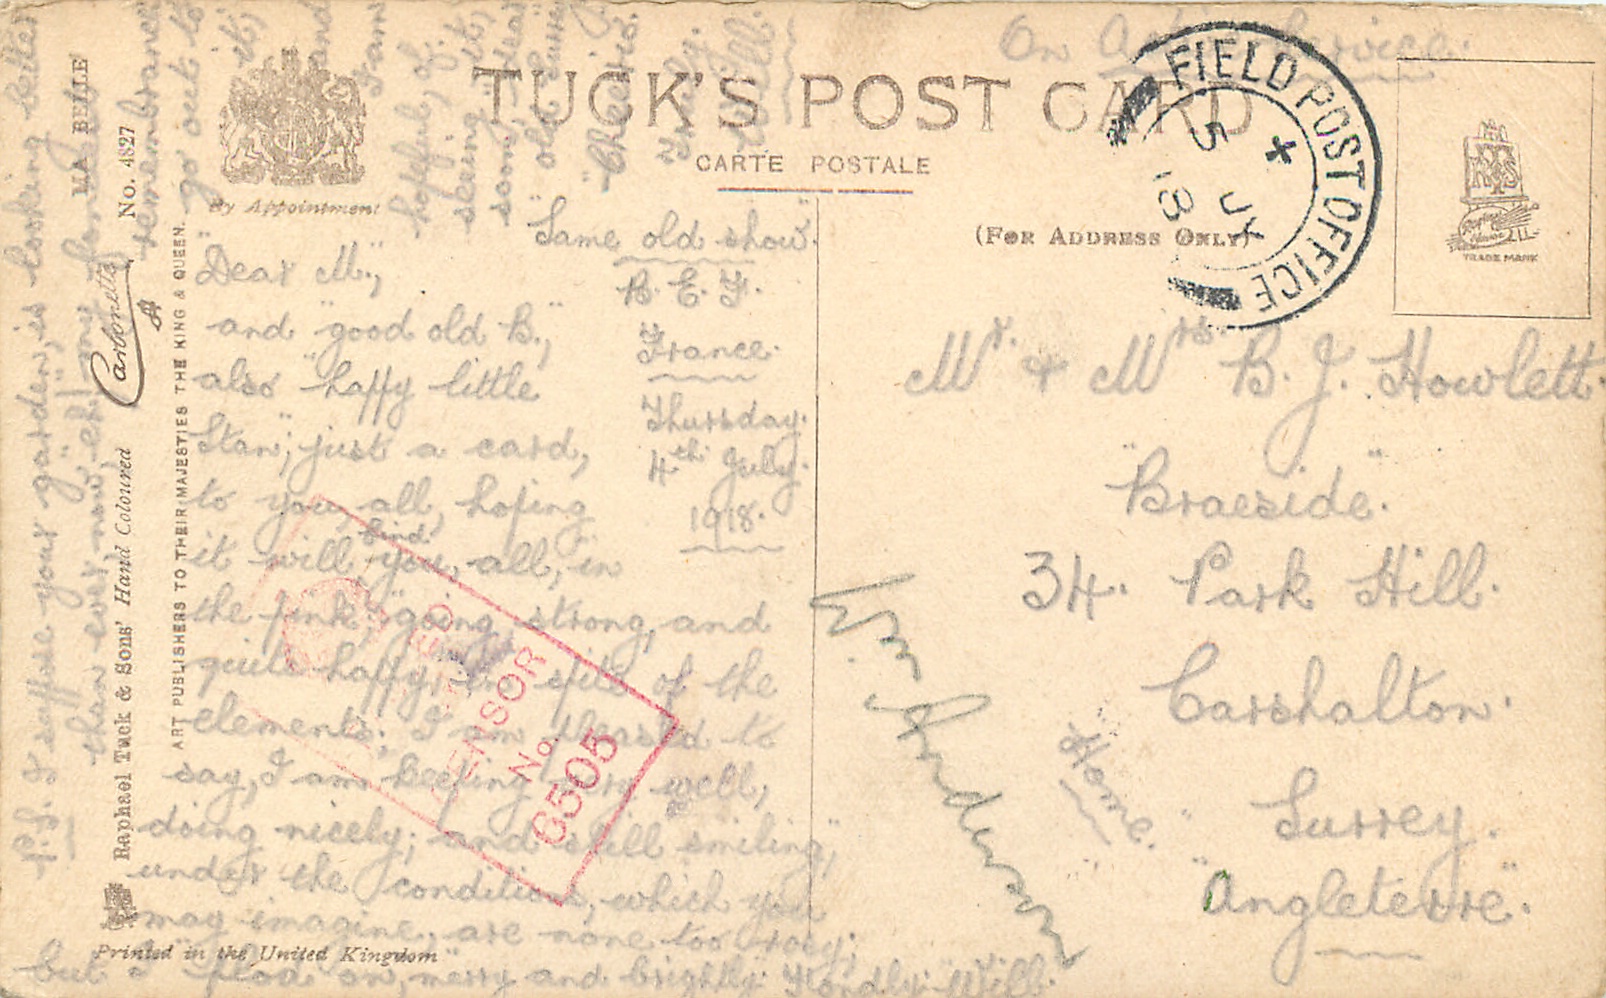 On Active Service.
TUCK'S POST CARD
CARTE POSTALE
By Appointment
(FOR ADDRESS ONLY)
FIELD POST OFFICE
5 JY 18
RTS
TRADE MARK
"Same old show".
B. E. F.
France.
Thursday.
4th July.
1918.
"Dear M.,"
and "good old B.,"
also "happy little
Stan", just a card,
to you, all, hoping
it will, find you, all, in
the pink, "going strong, and
quite happy, in spite of the
elements; I am pleased to
say, I am keeping very well,
doing nicely; and still smiling,"
under the conditions, which you
may imagine, are none too rosy;
but I plod on, "merry and brightly". Fondly. "Will".
P.S. I suppose your garden, is looking better
than ever, now, eh! my fondest
remembrances
go out to
it,
and
I am
hopeful, of
seeing it,
soon, dear
old Surrey
"Cheerio."
Truly.
Will.
LA BELLE
No. 4827
Carbonette
Raphael Tuck & Sons' Hand Coloured
ART PUBLISHERS TO THEIR MAJESTIES THE KING & QUEEN.
Printed in the United Kingdom
CENSOR
No. 6505
Mr. & Mrs. B. J. Howlett.
"Braeside".
34. Park Hill.
Carshalton.
Surrey.
"Angleterre".
Home.
Anderson